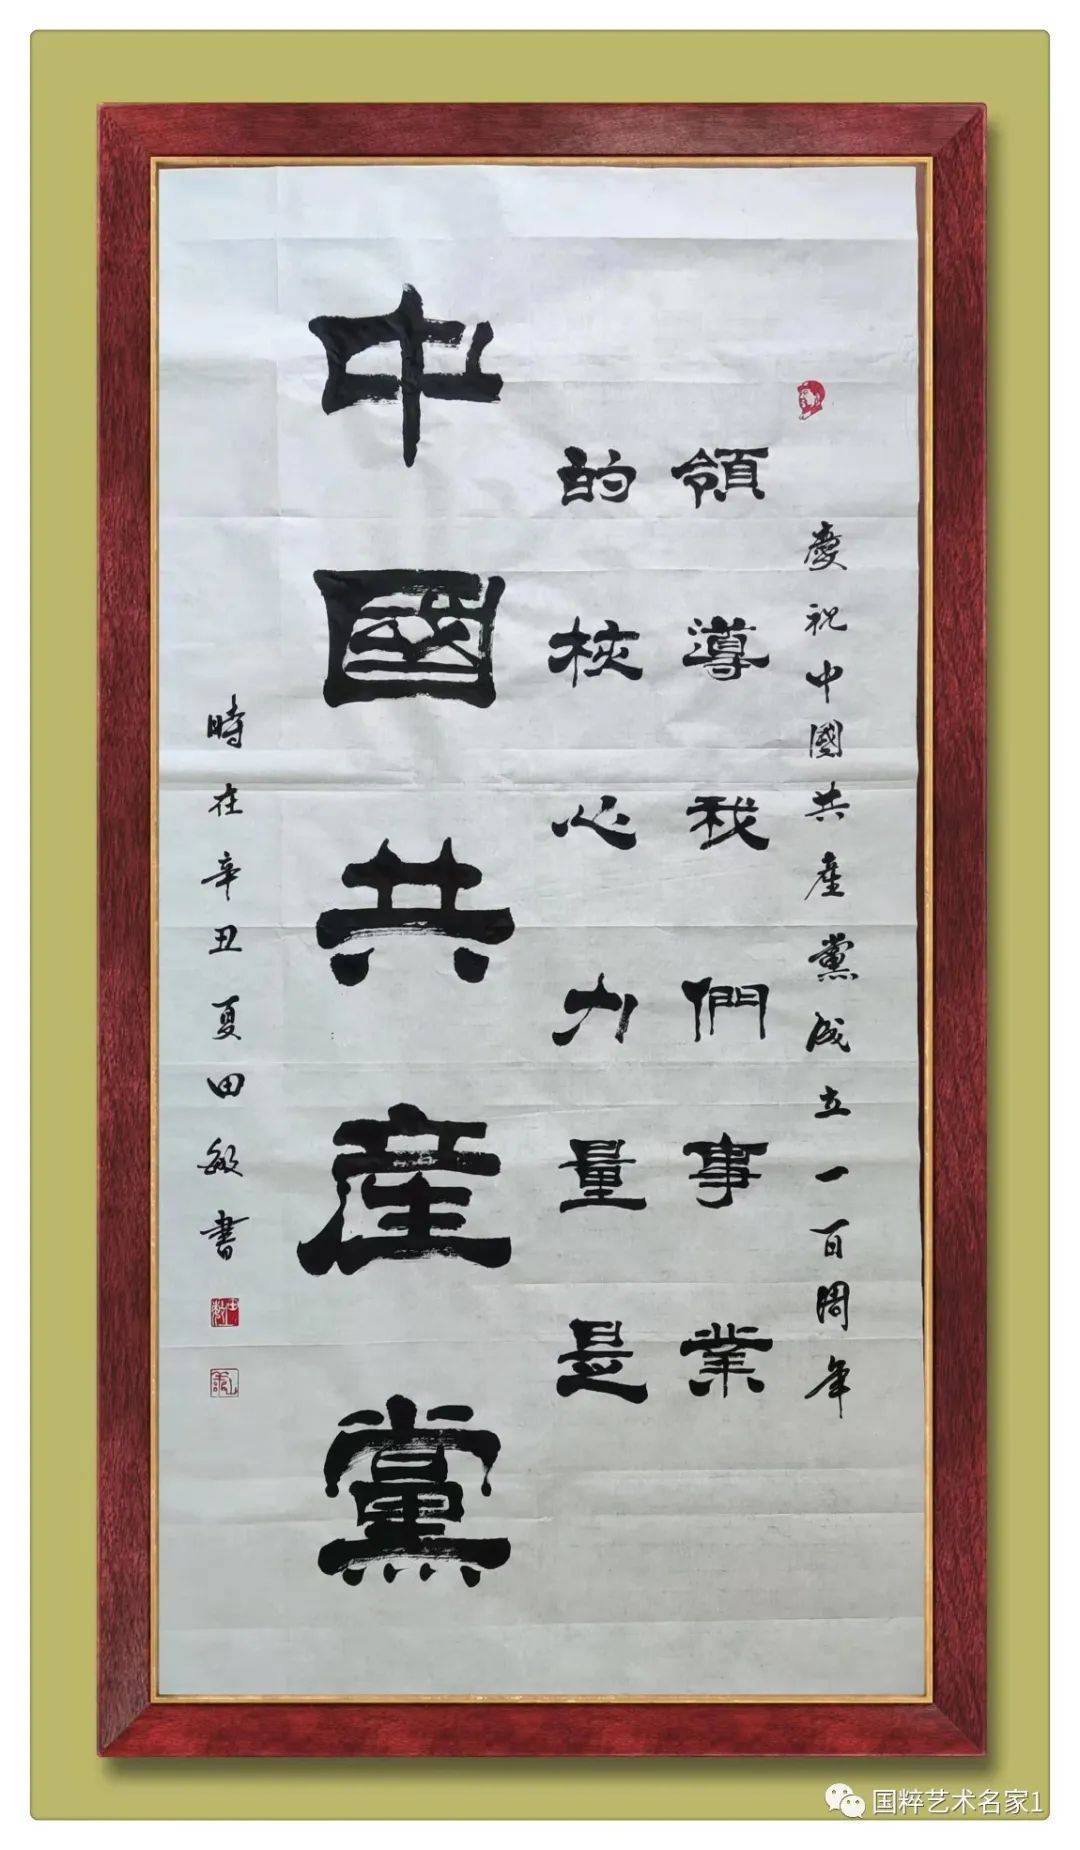 慶祝中國共產黨成立一百周年
領導我們事業
的核心力量是
中國共產黨
時在辛丑夏田敏書
国粹艺术名家1